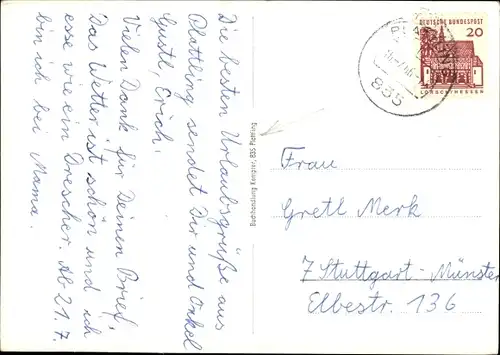 Die besten Urlaubsgrüße aus
Plattling sendet Dir und Onkel
Gustl, Erich!
Vielen Dank für Deinen Brief.
Das Wetter ist schön und ich
esse wie ein Drescher. Ab 21.7.
bin ich bei Mama.
Buchhandlung 835 Plattling
DEUTSCHE BUNDESPOST
20
LORSCH/HESSEN
835
Frau
Gretl Merk
7 Stuttgart-Münster
Elbestr. 136